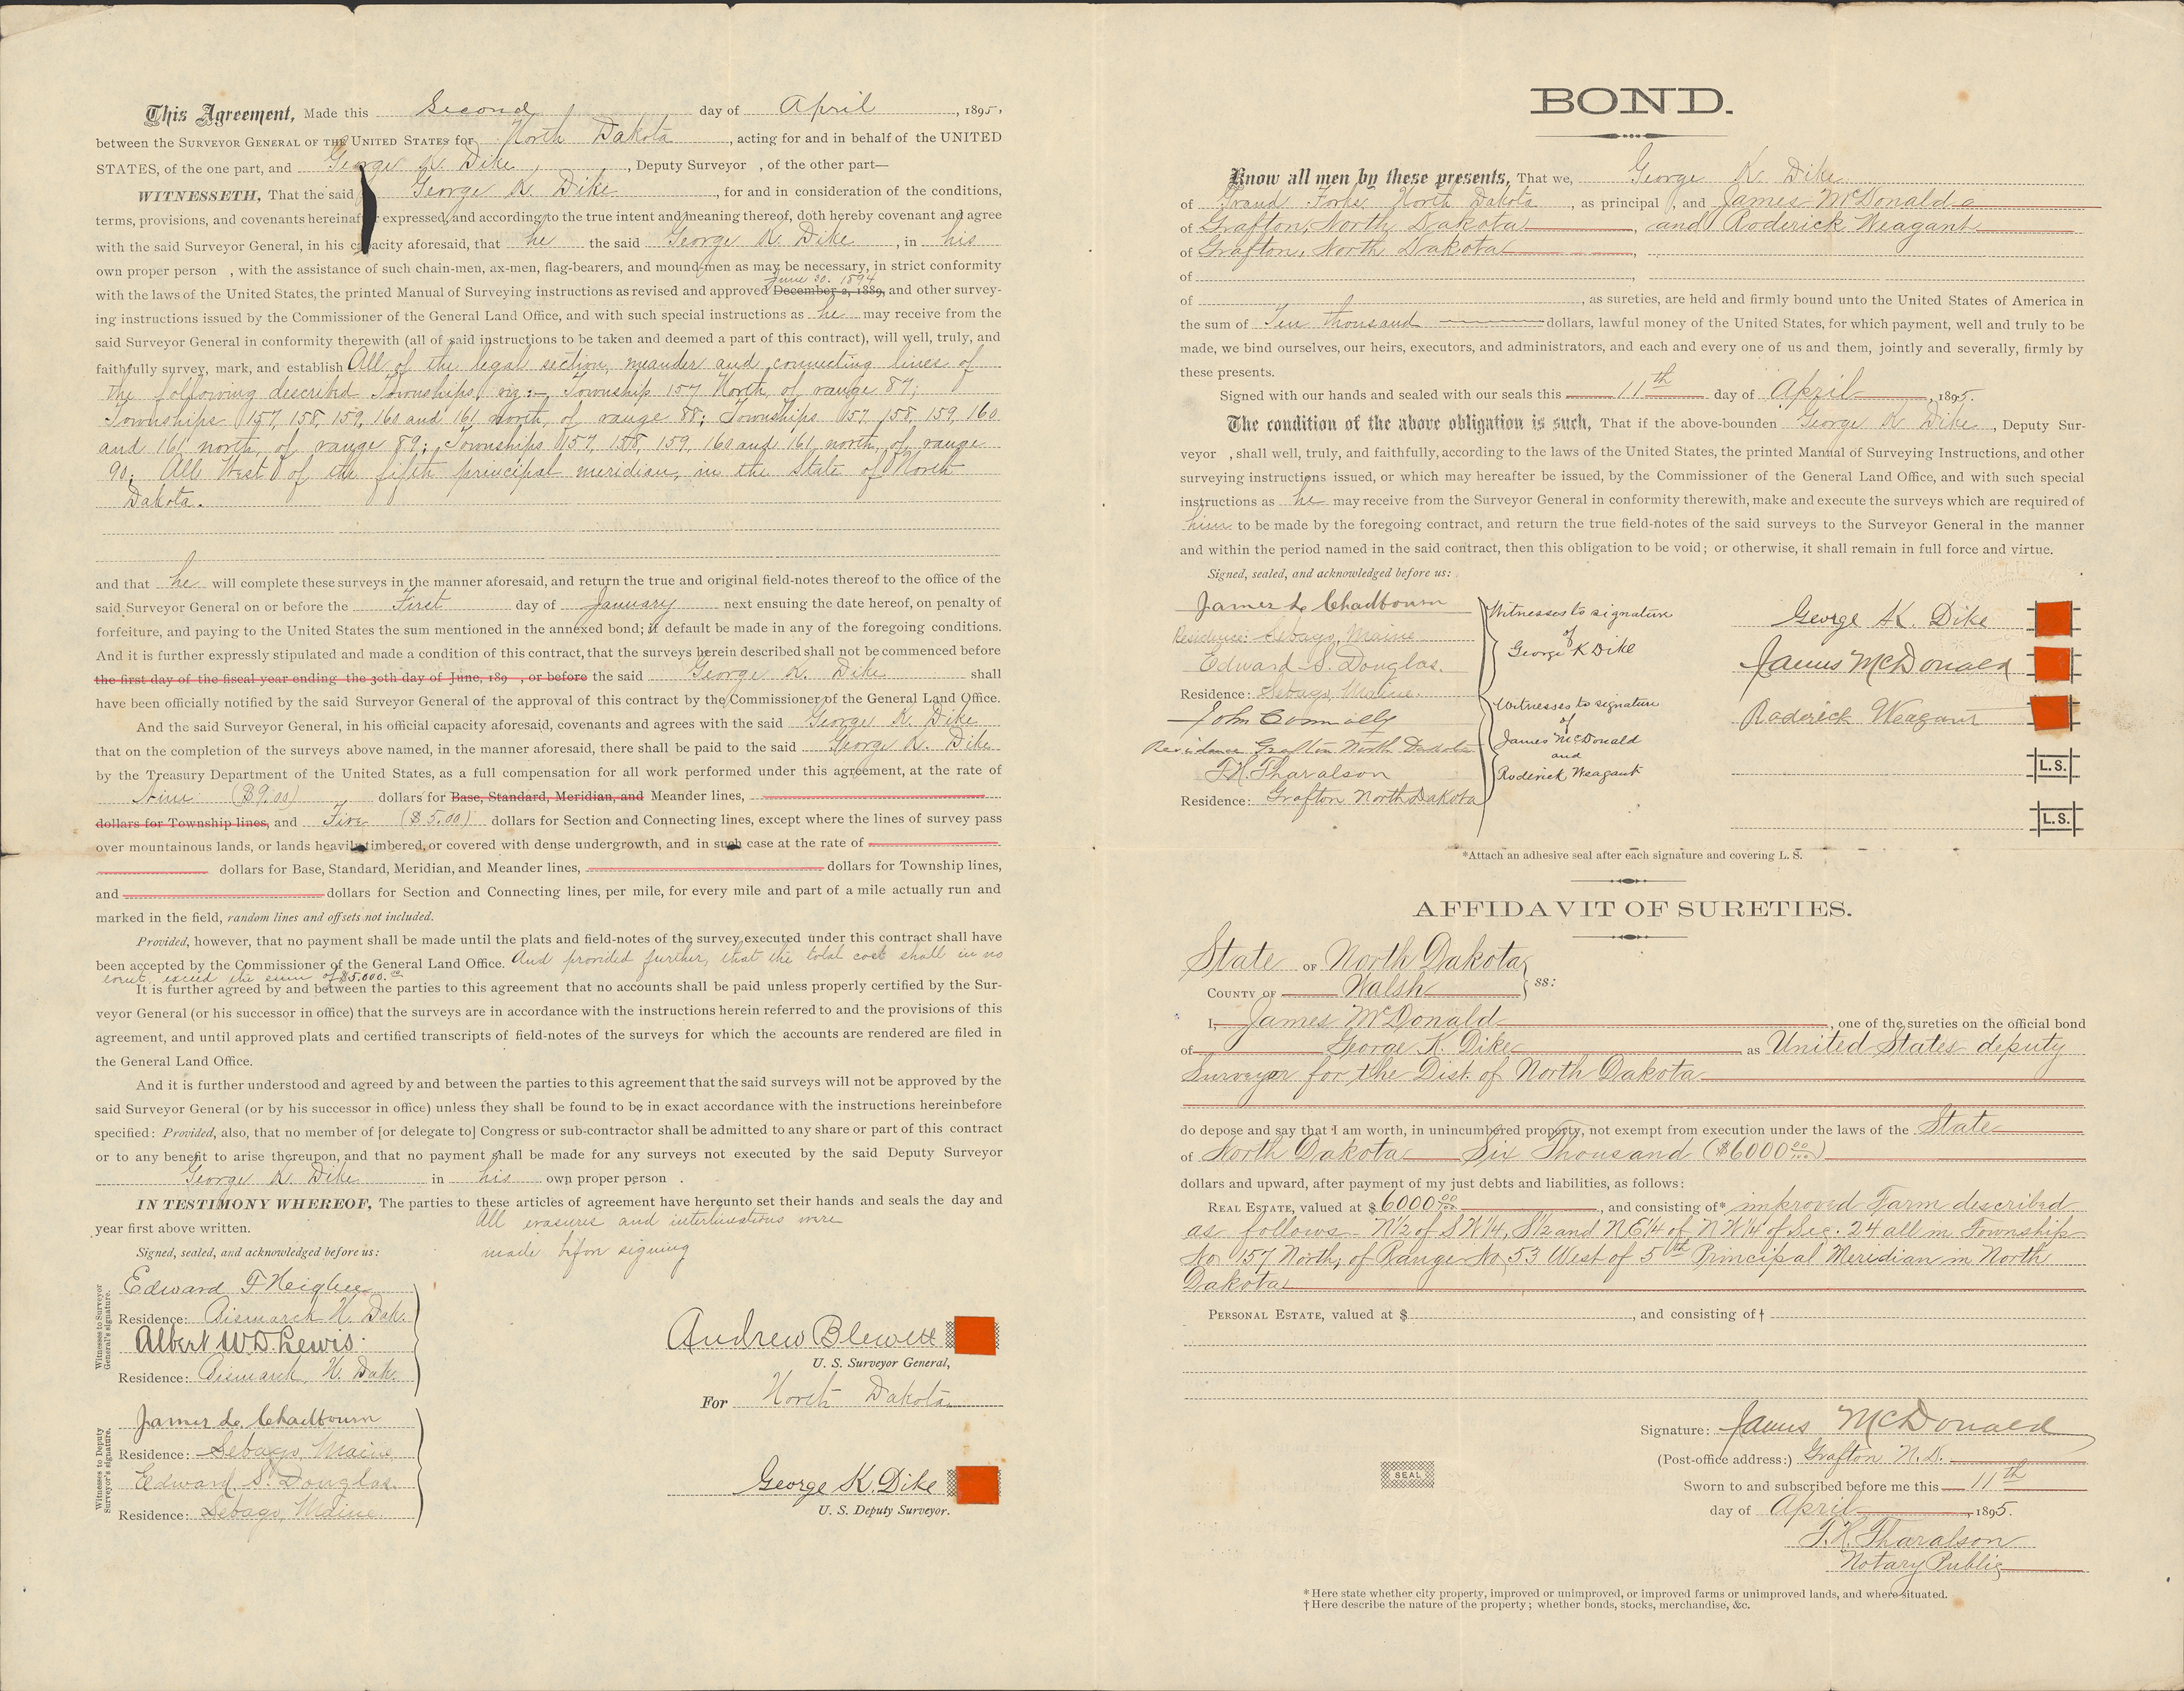 This Agreement, Made this Second day of April, 1895,
between the SURVEYOR GENERAL OF THE UNITED STATES for North Dakota, acting for and in behalf of the UNITED
STATES, of the one part, and George K. Dike, Deputy Surveyor , of the other part—
WITNESSETH, That the said George K. Dike, for and in consideration of the conditions,
terms, provisions, and covenants hereinafter expressed, and according to the true intent and meaning thereof, doth hereby covenant and agree
with the said Surveyor General, in his capacity aforesaid, that he the said George K. Dike, in his
own proper person , with the assistance of such chain-men, ax-men, flag-bearers, and mound-men as may be necessary, in strict conformity
June 30. 1894
with the laws of the United States, the printed Manual of Surveying instructions as revised and approved December 2, 1889, and other survey-
ing instructions issued by the Commissioner of the General Land Office, and with such special instructions as he may receive from the
said Surveyor General in conformity therewith (all of said instructions to be taken and deemed a part of this contract), will well, truly, and
faithfully survey, mark, and establish All of the legal section, meander and connecting lines of
the following described Townships viz:— Township 157 North, of range 87;
Townships 157, 158, 159, 160 and 161 north, of range 88; Townships 157, 158, 159, 160
and 161 north, of range 89; Townships 157, 158, 159, 160 and 161, north, of range
90; All West of the fifth principal meridian, in the State of North
Dakota.
and that he will complete these surveys in the manner aforesaid, and return the true and original field-notes thereof to the office of the
said Surveyor General on or before the First day of January next ensuing the date hereof, on penalty of
forfeiture, and paying to the United States the sum mentioned in the annexed bond; if default be made in any of the foregoing conditions.
And it is further expressly stipulated and made a condition of this contract, that the surveys herein described shall not be commenced before
the first day of the fiscal year ending the 30th day of June, 189 , or before the said George K. Dike shall
have been officially notified by the said Surveyor General of the approval of this contract by the Commissioner of the General Land Office.
And the said Surveyor General, in his official capacity aforesaid, covenants and agrees with the said George K. Dike
that on the completion of the surveys above named, in the manner aforesaid, there shall be paid to the said George K. Dike
by the Treasury Department of the United States, as a full compensation for all work performed under this agreement, at the rate of
Nine ($9.00) dollars for Base, Standard, Meridian, and Meander lines,
dollars for Township lines, and Five ($5.00) dollars for Section and Connecting lines, except where the lines of survey pass
over mountainous lands, or lands heavily timbered, or covered with dense undergrowth, and in such case at the rate of
dollars for Base, Standard, Meridian, and Meander lines, dollars for Township lines,
and dollars for Section and Connecting lines, per mile, for every mile and part of a mile actually run and
marked in the field, random lines and offsets not included.
Provided, however, that no payment shall be made until the plats and field-notes of the survey executed under this contract shall have
been accepted by the Commissioner of the General Land Office. And provided further, that the total cost shall in no
event exceed the sum of $5,000.00
It is further agreed by and between the parties to this agreement that no accounts shall be paid unless properly certified by the Sur-
veyor General (or his successor in office) that the surveys are in accordance with the instructions herein referred to and the provisions of this
agreement, and until approved plats and certified transcripts of field-notes of the surveys for which the accounts are rendered are filed in
the General Land Office.
And it is further understood and agreed by and between the parties to this agreement that the said surveys will not be approved by the
said Surveyor General (or by his successor in office) unless they shall be found to be in exact accordance with the instructions hereinbefore
specified: Provided, also, that no member of [or delegate to] Congress or sub-contractor shall be admitted to any share or part of this contract
or to any benefit to arise thereupon, and that no payment shall be made for any surveys not executed by the said Deputy Surveyor
George K. Dike in his own proper person .
IN TESTIMONY WHEREOF, The parties to these articles of agreement have hereunto set their hands and seals the day and
year first above written.
All erasures and interlineations were
made before signing
Signed, sealed, and acknowledged before us:
Witnesses to Surveyor General's signature.
Edward F Higbee
Residence: Bismarck N. Dak.
Albert W. D. Lewis.
Residence: Bismarck, N. Dak.
Andrew Blewett
U. S. Surveyor General,
For North Dakota
Witnesses to Deputy Surveyor's signature.
James L. Chadbourn
Residence: Sebago, Maine
Edward S. Douglas.
Residence: Sebago, Maine.
George K. Dike
U. S. Deputy Surveyor.
BOND.
Know all men by these presents, That we, George K. Dike
of Grand Forks North Dakota, as principal , and James McDonald
of Grafton, North Dakota, and Roderick Weagant
of Grafton, North Dakota,
of
of , as sureties, are held and firmly bound unto the United States of America in
the sum of Ten thousand dollars, lawful money of the United States, for which payment, well and truly to be
made, we bind ourselves, our heirs, executors, and administrators, and each and every one of us and them, jointly and severally, firmly by
these presents.
Signed with our hands and sealed with our seals this 11th day of April, 1895.
The condition of the above obligation is such, That if the above-bounden George K Dike, Deputy Sur-
veyor , shall well, truly, and faithfully, according to the laws of the United States, the printed Manual of Surveying Instructions, and other
surveying instructions issued, or which may hereafter be issued, by the Commissioner of the General Land Office, and with such special
instructions as he may receive from the Surveyor General in conformity therewith, make and execute the surveys which are required of
him to be made by the foregoing contract, and return the true field-notes of the said surveys to the Surveyor General in the manner
and within the period named in the said contract, then this obligation to be void; or otherwise, it shall remain in full force and virtue.
Signed, sealed, and acknowledged before us:
James L. Chadbourn
Residence: Sebago, Maine
Edward S. Douglas.
Residence: Sebago, Maine.
Witnesses to signature
of
George K Dike
John Connolly
Residence Grafton North Dakota
T. H. Tharalson
Residence: Grafton North Dakota
Witnesses to signature
of
James McDonald
and
Roderick Weagant
George K. Dike
James McDonald
Roderick Weagant
L.S.
L.S.
*Attach an adhesive seal after each signature and covering L. S.
AFFIDAVIT OF SURETIES.
State OF North Dakota
COUNTY OF Walsh ss:
I, James McDonald, one of the sureties on the official bond
of George K. Dike as United States deputy
Surveyor for the Dist. of North Dakota
do depose and say that I am worth, in unincumbered property, not exempt from execution under the laws of the State
of North Dakota Six Thousand ($6000 00/100)
dollars and upward, after payment of my just debts and liabilities, as follows:
REAL ESTATE, valued at $6000 00/100, and consisting of* improved Farm described
as follows N1/2 of SW1/4, S1/2 and NE1/4 of NW1/4 of Sec. 24 all in Township
No 157 North, of Range No 53 West of 5th Principal Meridian in North
Dakota
PERSONAL ESTATE, valued at $ , and consisting of†
Signature: James McDonald
(Post-office address:) Grafton N.D.
SEAL
Sworn to and subscribed before me this 11th
day of April, 1895.
T. H. Tharalson
Notary Public
* Here state whether city property, improved or unimproved, or improved farms or unimproved lands, and where situated.
† Here describe the nature of the property; whether bonds, stocks, merchandise, &c.